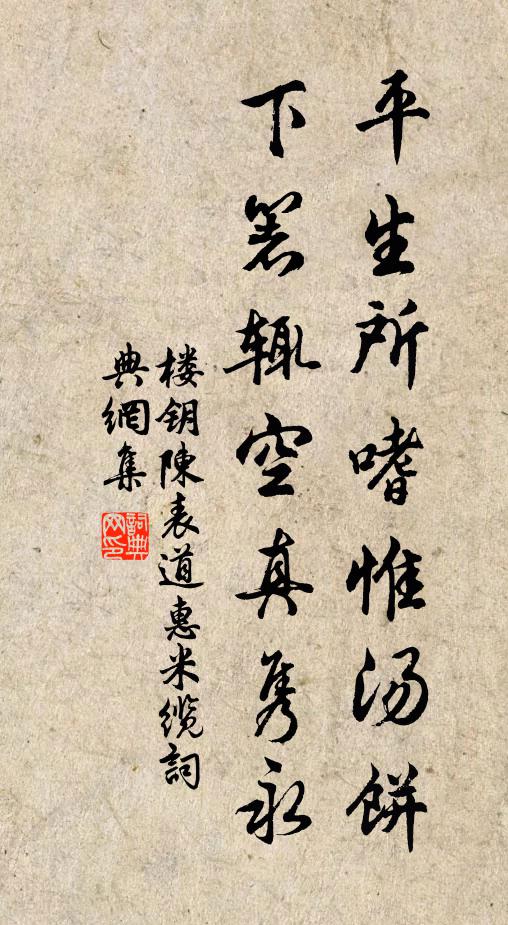 平生所嗜惟汤餅
下箸辄空真隽永
楼钥陳表道惠米缆詞
典網集
詞典网印